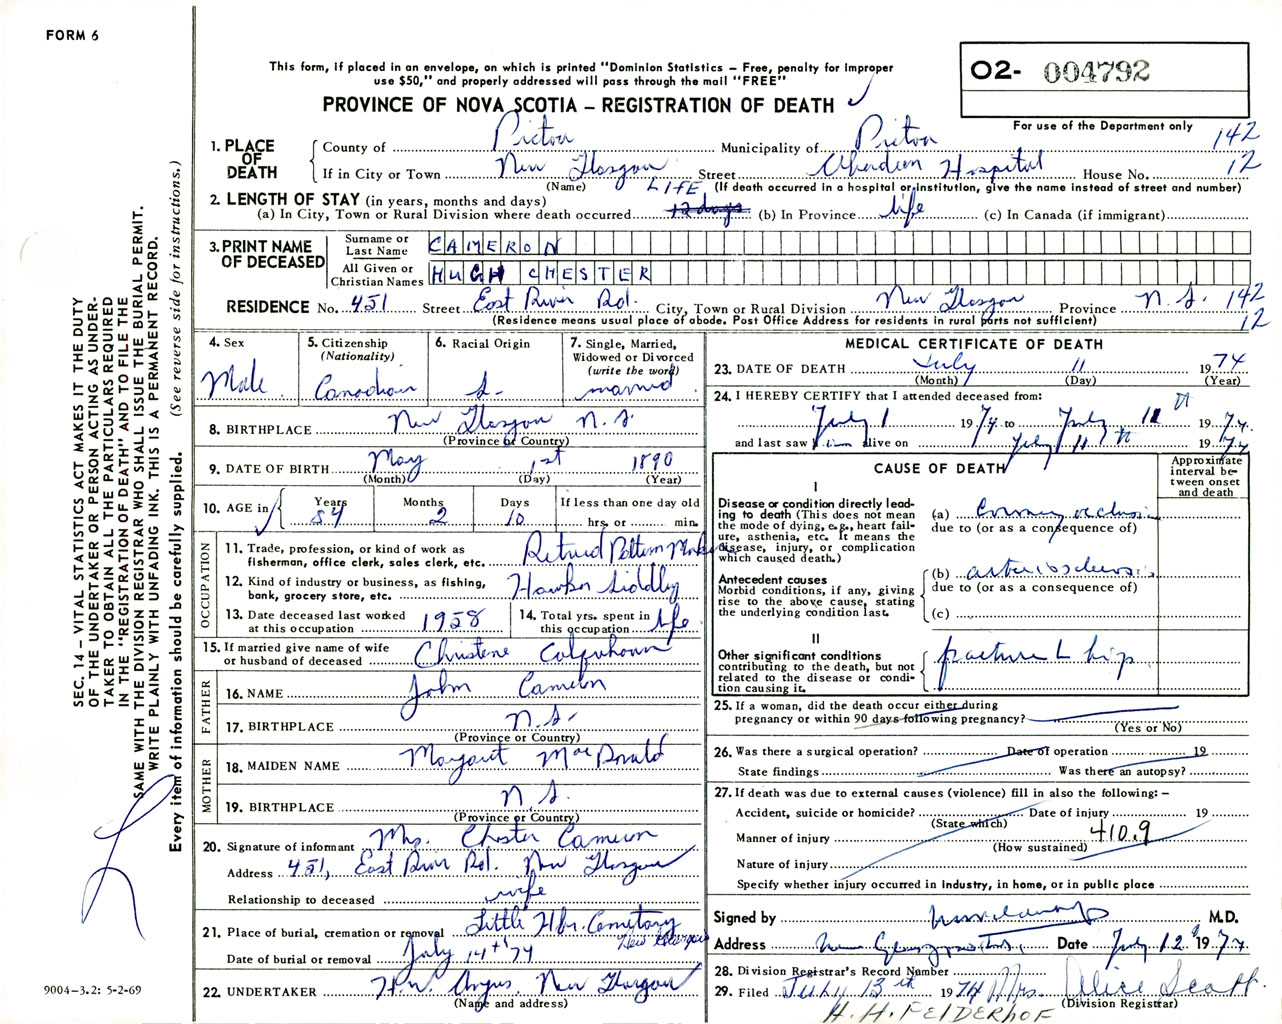 FORM 6
This form, if placed in an envelope, on which is printed "Dominion Statistics – Free, penalty for improper
use $50," and properly addressed will pass through the mail "FREE"
PROVINCE OF NOVA SCOTIA – REGISTRATION OF DEATH
O2- 004792
For use of the Department only
1. PLACE OF DEATH County of Pictou Municipality of Pictou 142
If in City or Town New Glasgow Street Aberdeen Hospital House No. 12
(Name) (If death occurred in a hospital or institution, give the name instead of street and number)
2. LENGTH OF STAY (in years, months and days) LIFE
(a) In City, Town or Rural Division where death occurred 12 days (b) In Province life (c) In Canada (if immigrant)
3. PRINT NAME OF DECEASED Surname or Last Name CAMERON
All Given or Christian Names HUGH CHESTER
RESIDENCE No. 451 Street East River Rd. City, Town or Rural Division New Glasgow Province N.S. 142
(Residence means usual place of abode. Post Office Address for residents in rural parts not sufficient) 12
4. Sex Male
5. Citizenship (Nationality) Canadian
6. Racial Origin S-
7. Single, Married, Widowed or Divorced (write the word) married
8. BIRTHPLACE New Glasgow N.S
(Province or Country)
9. DATE OF BIRTH May 1st 1890
(Month) (Day) (Year)
10. AGE in Years 84 Months 2 Days 10 If less than one day old hrs. or min.
OCCUPATION
11. Trade, profession, or kind of work as fisherman, office clerk, sales clerk, etc. Retired Pattern Maker
12. Kind of industry or business, as fishing, bank, grocery store, etc. Hawker Siddley
13. Date deceased last worked at this occupation 1958
14. Total yrs. spent in this occupation life
15. If married give name of wife or husband of deceased Christene Colquhoun
FATHER
16. NAME John Cameron
17. BIRTHPLACE N.S.
(Province or Country)
MOTHER
18. MAIDEN NAME Margaret MacDonald
19. BIRTHPLACE N.S.
(Province or Country)
20. Signature of informant Mrs. Chester Cameron
Address 451, East River Rd. New Glasgow
Relationship to deceased wife
21. Place of burial, cremation or removal Little Hbr. Cemetary New Glasgow
Date of burial or removal July 14th 74
22. UNDERTAKER H.W. Angus, New Glasgow
(Name and address)
MEDICAL CERTIFICATE OF DEATH
23. DATE OF DEATH July 11 1974
(Month) (Day) (Year)
24. I HEREBY CERTIFY that I attended deceased from:
July 1 1974 to July 11th 1974
and last saw him alive on July 11th 1974
CAUSE OF DEATH
Approximate interval between onset and death
I
Disease or condition directly leading to death (This does not mean the mode of dying, e.g., heart failure, asthenia, etc. It means the disease, injury, or complication which caused death.)
(a) Coronary occlusion
due to (or as a consequence of)
Antecedent causes
Morbid conditions, if any, giving rise to the above cause, stating the underlying condition last.
(b) arteriosclerosis
due to (or as a consequence of)
(c)
II
Other significant conditions
contributing to the death, but not related to the disease or condition causing it.
fracture L hip
25. If a woman, did the death occur either during
pregnancy or within 90 days following pregnancy?
(Yes or No)
26. Was there a surgical operation? Date of operation 19
State findings Was there an autopsy?
27. If death was due to external causes (violence) fill in also the following: –
Accident, suicide or homicide? Date of injury 19
(State which)
Manner of injury 410.9
(How sustained)
Nature of injury
Specify whether injury occurred in Industry, in home, or in public place
Signed by M.D.
Address Date July 12 1974
28. Division Registrar's Record Number
29. Filed July 13th 1974 Mrs. Alice Scott
(Division Registrar)
H.H. FELDERHOF
SEC. 14 – VITAL STATISTICS ACT MAKES IT THE DUTY
OF THE UNDERTAKER OR PERSON ACTING AS UNDER-
TAKER TO OBTAIN ALL THE PARTICULARS REQUIRED
IN THE "REGISTRATION OF DEATH" AND TO FILE THE
SAME WITH THE DIVISION REGISTRAR WHO SHALL ISSUE THE BURIAL PERMIT.
WRITE PLAINLY WITH UNFADING INK. THIS IS A PERMANENT RECORD.
Every item of information should be carefully supplied. (See reverse side for instructions.)
9004-3.2: 5-2-69